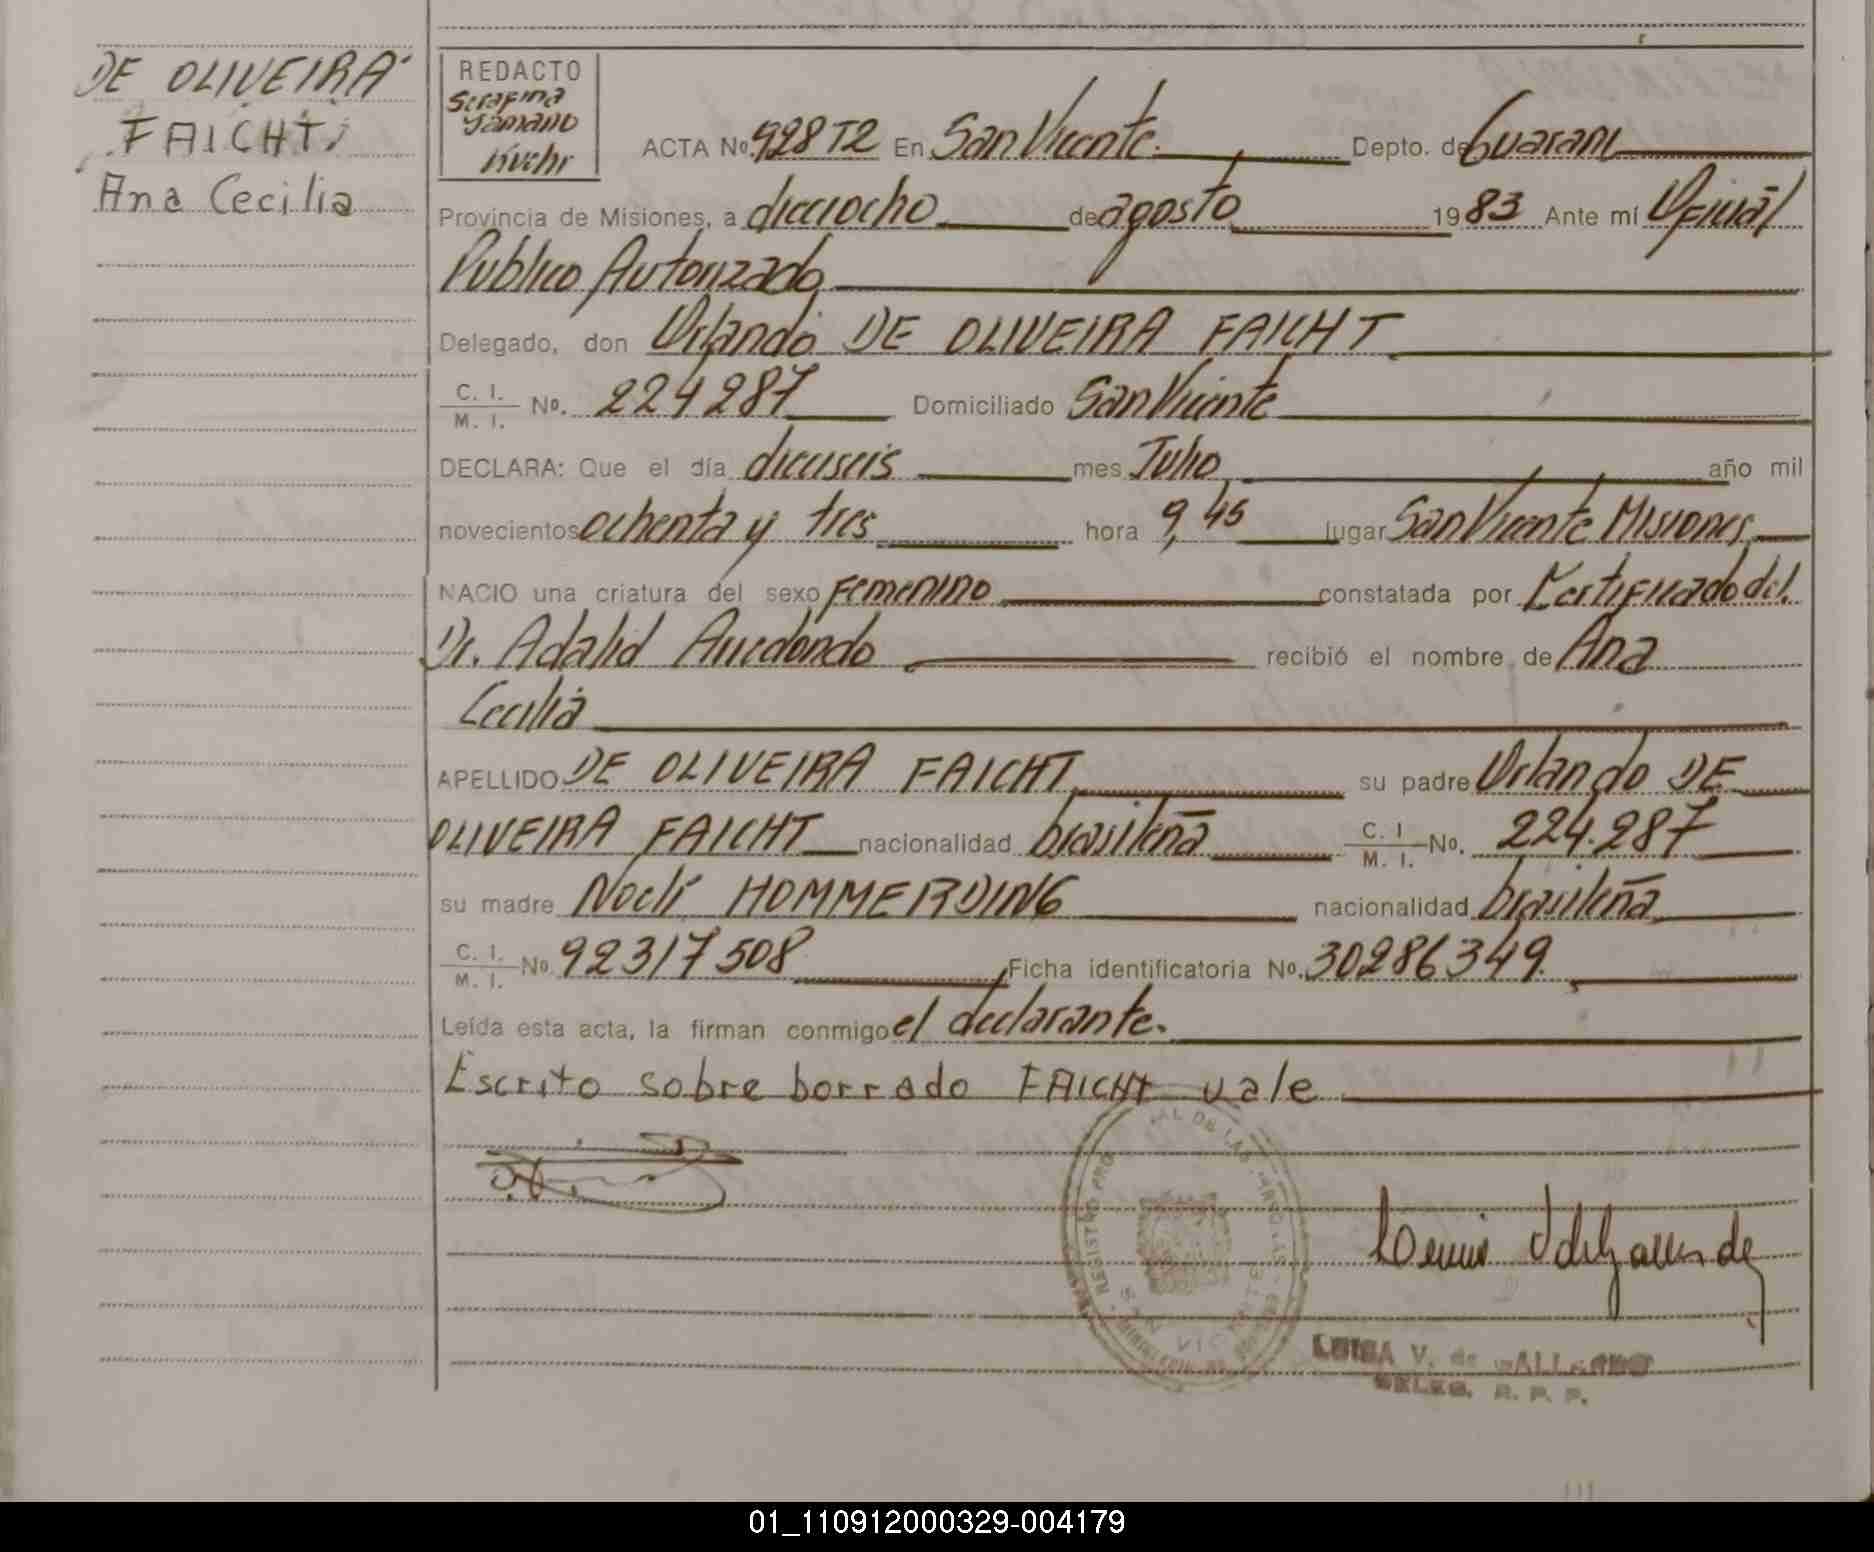 DE OLIVEIRA
FAICHT
Ana Cecilia
REDACTO
Serafina
Yamano
Kuehr
ACTA No. 928 T2 En San Vicente. Depto. de Guarani
Provincia de Misiones, a dieciocho de agosto 1983 Ante mí Oficial
Publico Autorizado
Delegado, don Orlando DE OLIVEIRA FAICHT
C. I. / M. I. No. 224287 Domiciliado San Vicente
DECLARA: Que el día dieciseis mes Julio año mil
novecientos ochenta y tres hora 9,45 lugar San Vicente Misiones
NACIO una criatura del sexo Femenino constatada por Certificado del
Dr. Adalid Arredondo recibió el nombre de Ana
Cecilia
APELLIDO DE OLIVEIRA FAICHT su padre Orlando DE
OLIVEIRA FAICHT nacionalidad brasileña C. I / M. I. No. 224.287
su madre Noeli HOMMERDING nacionalidad brasileña
C. I. / M. I. No. 92317508 Ficha identificatoria No. 30286349.
Leída esta acta, la firman conmigo el declarante.
Escrito sobre borrado FAICHT vale
REGISTRO PRO AL DE LAS
SAN VICENTE
LUISA V. de GALLARDO
DELEG. R. P. P.
01_110912000329-004179